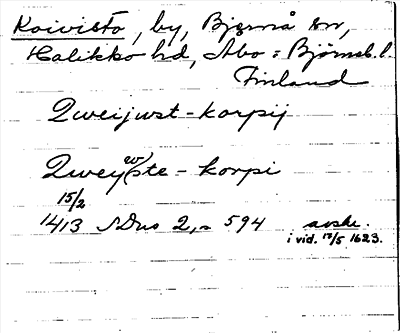 Koivisto, by, Bjernå sn,
Halikko hd, Åbo : Björneb. l.
Finland
Qweijwst-korpij
Qwey(w)ste-korpi
15/2
1413 SDns 2, n 594 avskr.
i vid. 12/5 1623.